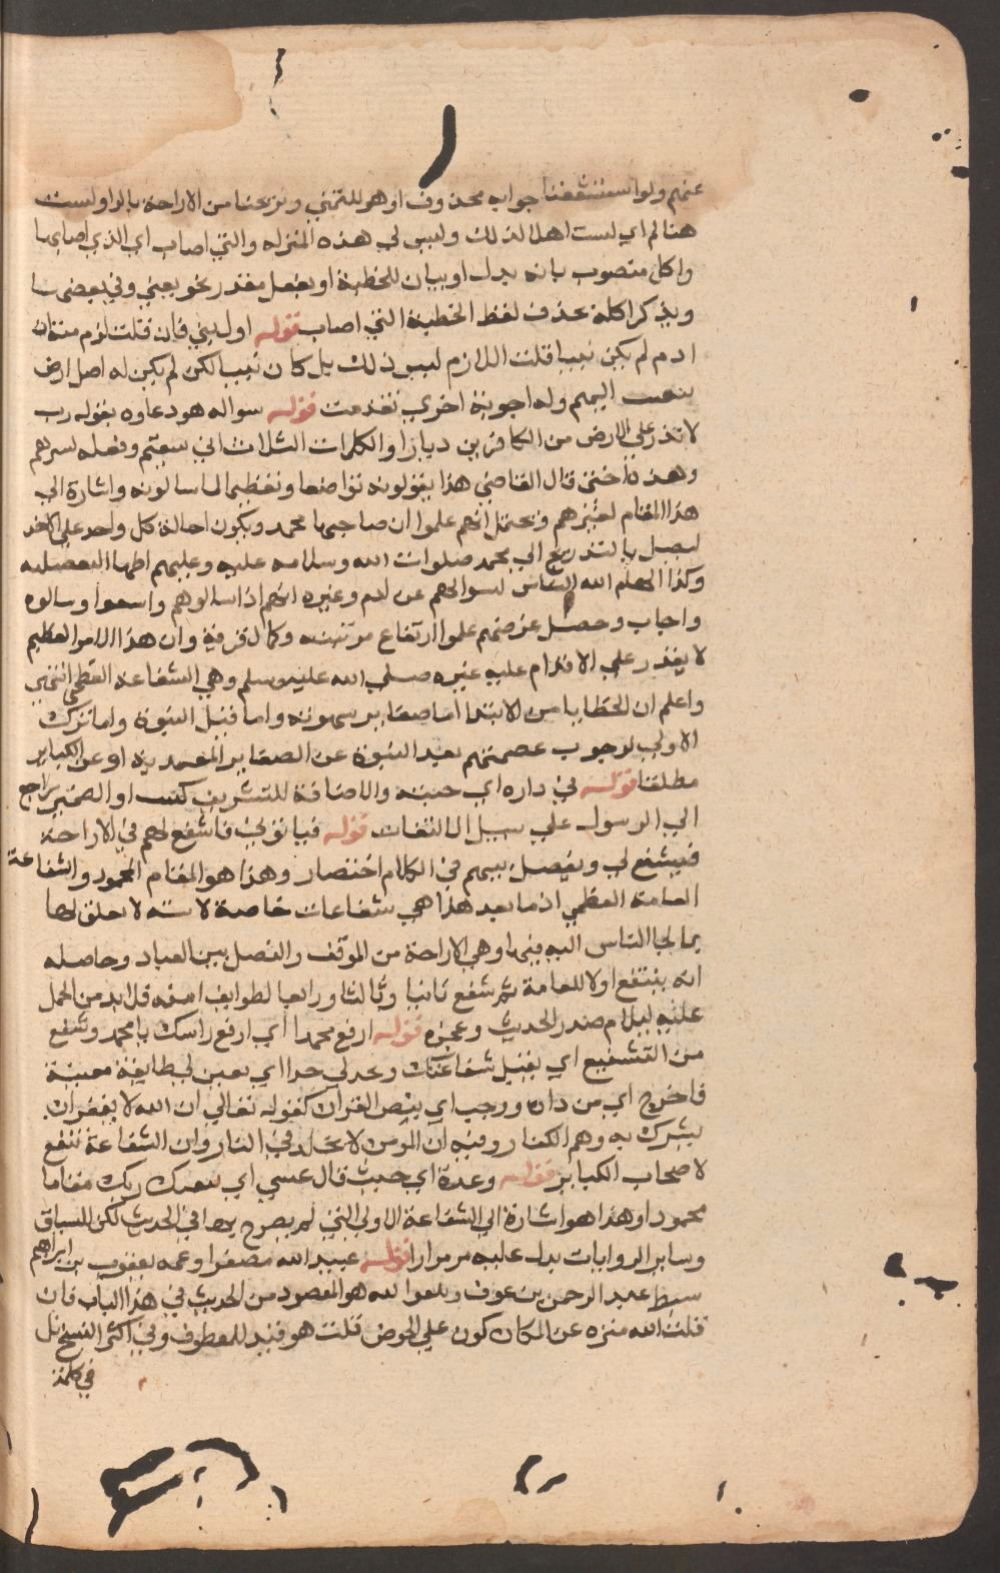 عنهم ولو استشفعنا جوابه محذوف او هو للتمني ويريحنا من الاراحة بالراء ولست
هنا لم اي لست اهلا لذلك وليس لي هذه المنزلة والتي اصاب اي الذي اصابها
واكل منصوب بانه بدل او بيان للخطية او بفعل مقدر نحو يعني وفي بعضها
ويذكر اكله بحذف لفظ الخطية التي اصاب قوله اول نبي فان قلت لزم منه ان
ادم لم يكن نبيا قلت اللازم ليس ذلك بل كان نبيا لكن لم يكن له اصل ارض
يبعث اليهم وله اجوبة اخري تقدمت قوله سواله هو دعاوه بقوله رب
لا تذر علي الارض من الكافرين ديارا والكلمات الثلاث اني سقيم وفعله كبيرهم
وهذه اختي قال القاضي هذا يقولونه تواضعا وتعظيما لما سالونه واشارة الي
هذا المقام لغيرهم ويحتمل انهم علموا ان صاحبها محمد ويكون احالة كل واحد علي الاخر
ليصل بالتدريج الي محمد صلوات الله وسلامه عليه وعليهم اظهارا لفضيلته
وكذا الهام الله الناس لسوالهم عن ادم وغيره انهم اذا سالوهم واسمعوا وسالوه
واجاب وحصل غرضهم علموا ارتفاع مرتبته وكمال قربه وان هذا الامر العظيم
لا يقدر علي الاقدام عليه غيره صلي الله عليه وسلم وهي الشفاعة العظمي انتهي
واعلم ان الخطايا من الانبيا اما صغاير سهوية واما قبل النبوة واما ترك
الاولي لوجوب عصمتهم بعد النبوة عن الصغاير العمدية او عن الكباير
مطلقا قوله في داره اي جنته والاضافة للتشريف كبيت او الضمير راجع
الي الرسول علي سبيل الالتفات قوله فياتوني فاشفع لهم في الاراحة
فيشفع لي ويفصل بينهم في الكلام اختصار وهذا هو المقام المحمود والشفاعة
العامة العظمي اذ ما بعد هذا هي شفاعات خاصة لامته لا تعلق لها
بما لجا الناس اليه فيها وهي الاراحة من الموقف والفصل بين العباد وحاصله
انه يشفع اولا للعامة ثم شفع ثانيا وثالثا ورابعا لطوايف امته فلا بد من الحمل
عليه ليلايم صدر الحديث وعجزه قوله ارفع محمدا اي ارفع راسك يا محمد وتشفع
من التشفيع اي يقبل شفاعتك ويحد لي حدا اي يعين لي طايفة معينة
فاخرج اي من داره ووجب اي بنص القران كقوله تعالي ان الله لا يغفر ان
يشرك به وهم الكفار وفيه ان المومن لا يخلد في النار وان الشفاعة تنفع
لاصحاب الكباير قوله وعده اي حيث قال عسي اي يبعثك ربك مقاما
محمودا وهذا هو اشارة الي الشفاعة الاولي التي لم يصرح بها في الحديث لكن السياق
وساير الروايات يدل عليه مر مرارا قوله عبيد الله مصغرا وعمه يعقوب بن ابراهيم
سبط عبد الرحمن بن عوف وتلقوا الله هو المقصود من الحديث في هذا الباب فان
قلت الله منزه عن المكان كون علي الحوض قلت هو قيد للمعطوف وفي اكثر النسخ بل
في كلمة